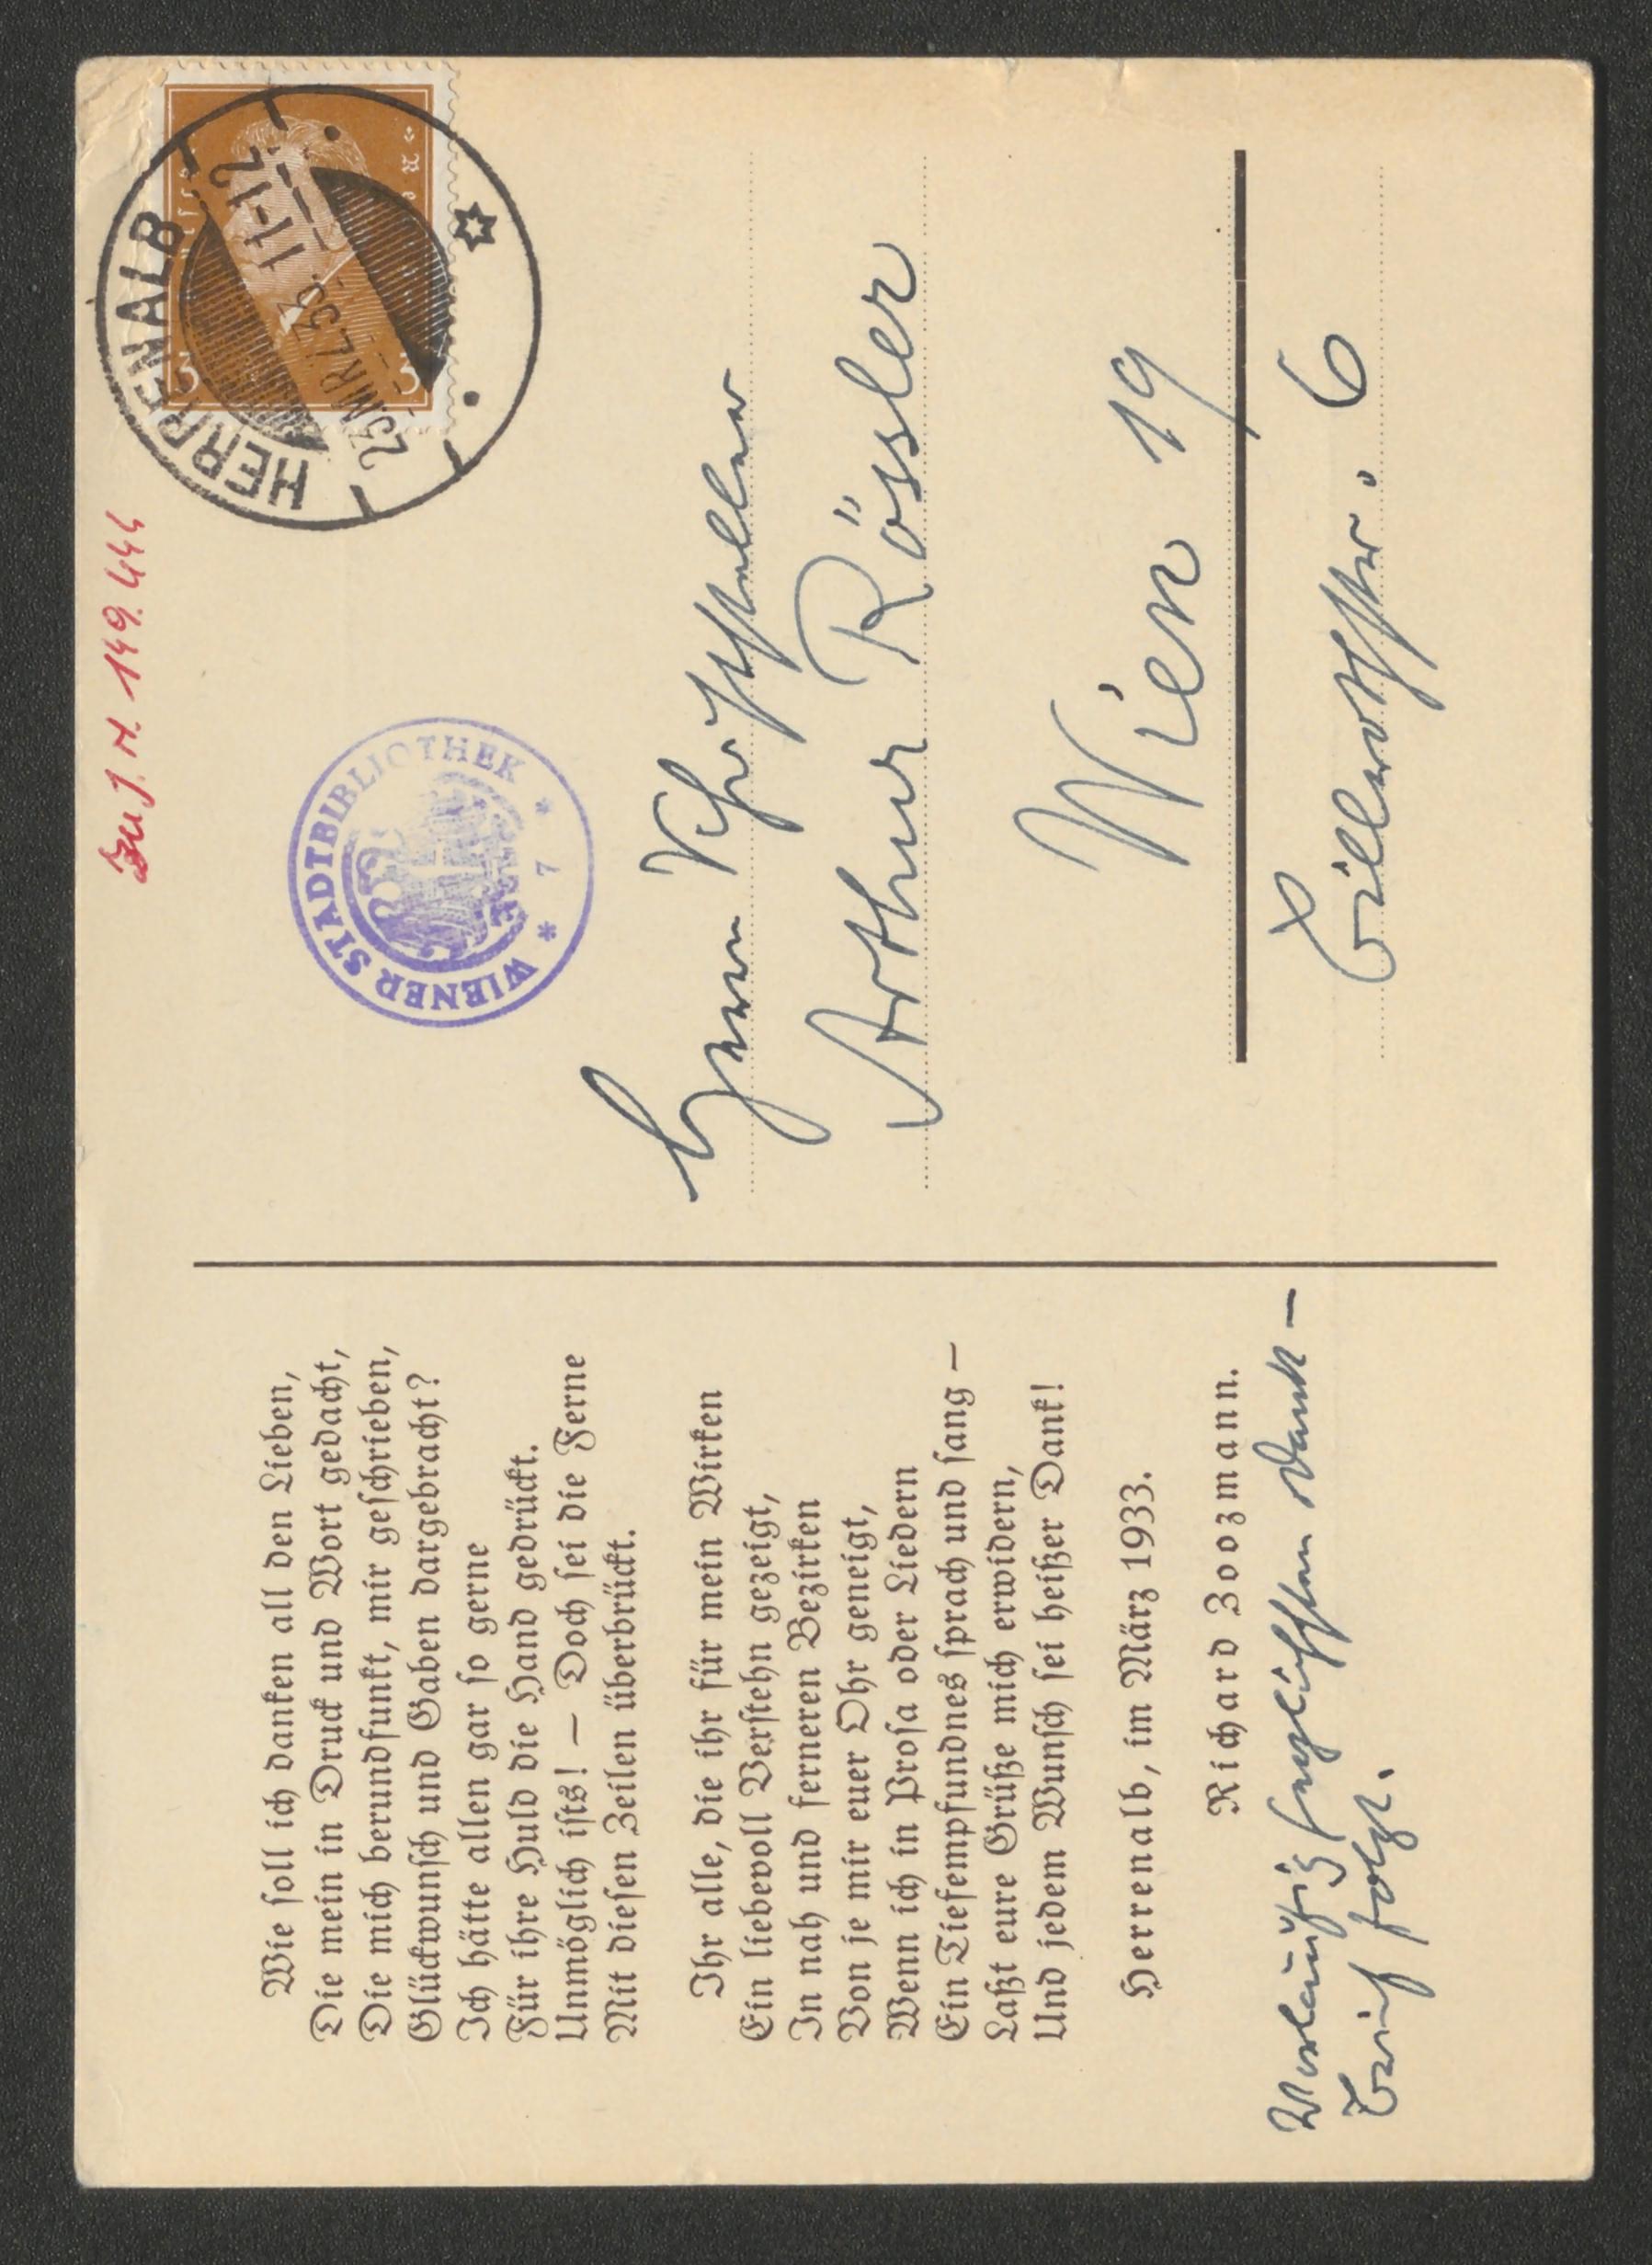 Wie soll ich danken all den Lieben,
Die mein in Druck und Wort gedacht,
Die mich berundfunkt, mir geschrieben,
Glückwunsch und Gaben dargebracht?
Ich hätte allen gar so gerne
Für ihre Huld die Hand gedrückt.
Unmöglich ists! — Doch sei die Ferne
Mit diesen Zeilen überbrückt.
Ihr alle, die ihr für mein Wirken
Ein liebevoll Verstehn gezeigt,
In nah und ferneren Bezirken
Von je mir euer Ohr geneigt,
Wenn ich in Prosa oder Liedern
Ein Tiefempfundnes sprach und sang —
Laßt eure Grüße mich erwidern,
Und jedem Wunsch sei heißer Dank!
Herrenalb, im März 1933.
Richard Zoozmann.
Vorläufig herzlichsten Dank —
Brief folgt.
Zu J. N. 149.444
HERRENALB
25.MRZ.33. 11-12
3 3
WIENER STADTBIBLIOTHEK * 7 *
Herrn Schriftsteller
Arthur Rössler
Wien 19
Billrothstr. 6